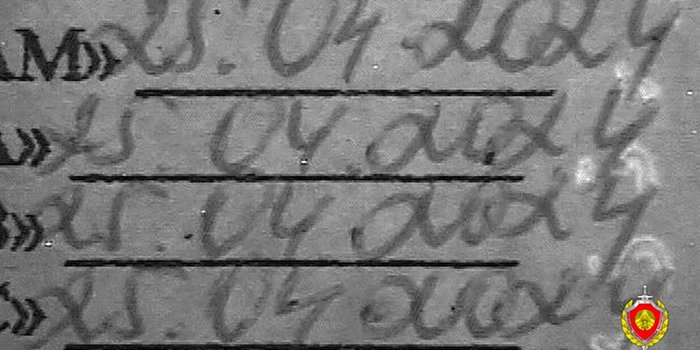 АМ» 25.04.2024
» 25.04.2024
В» 25.04.2024
С» 25.04.2024